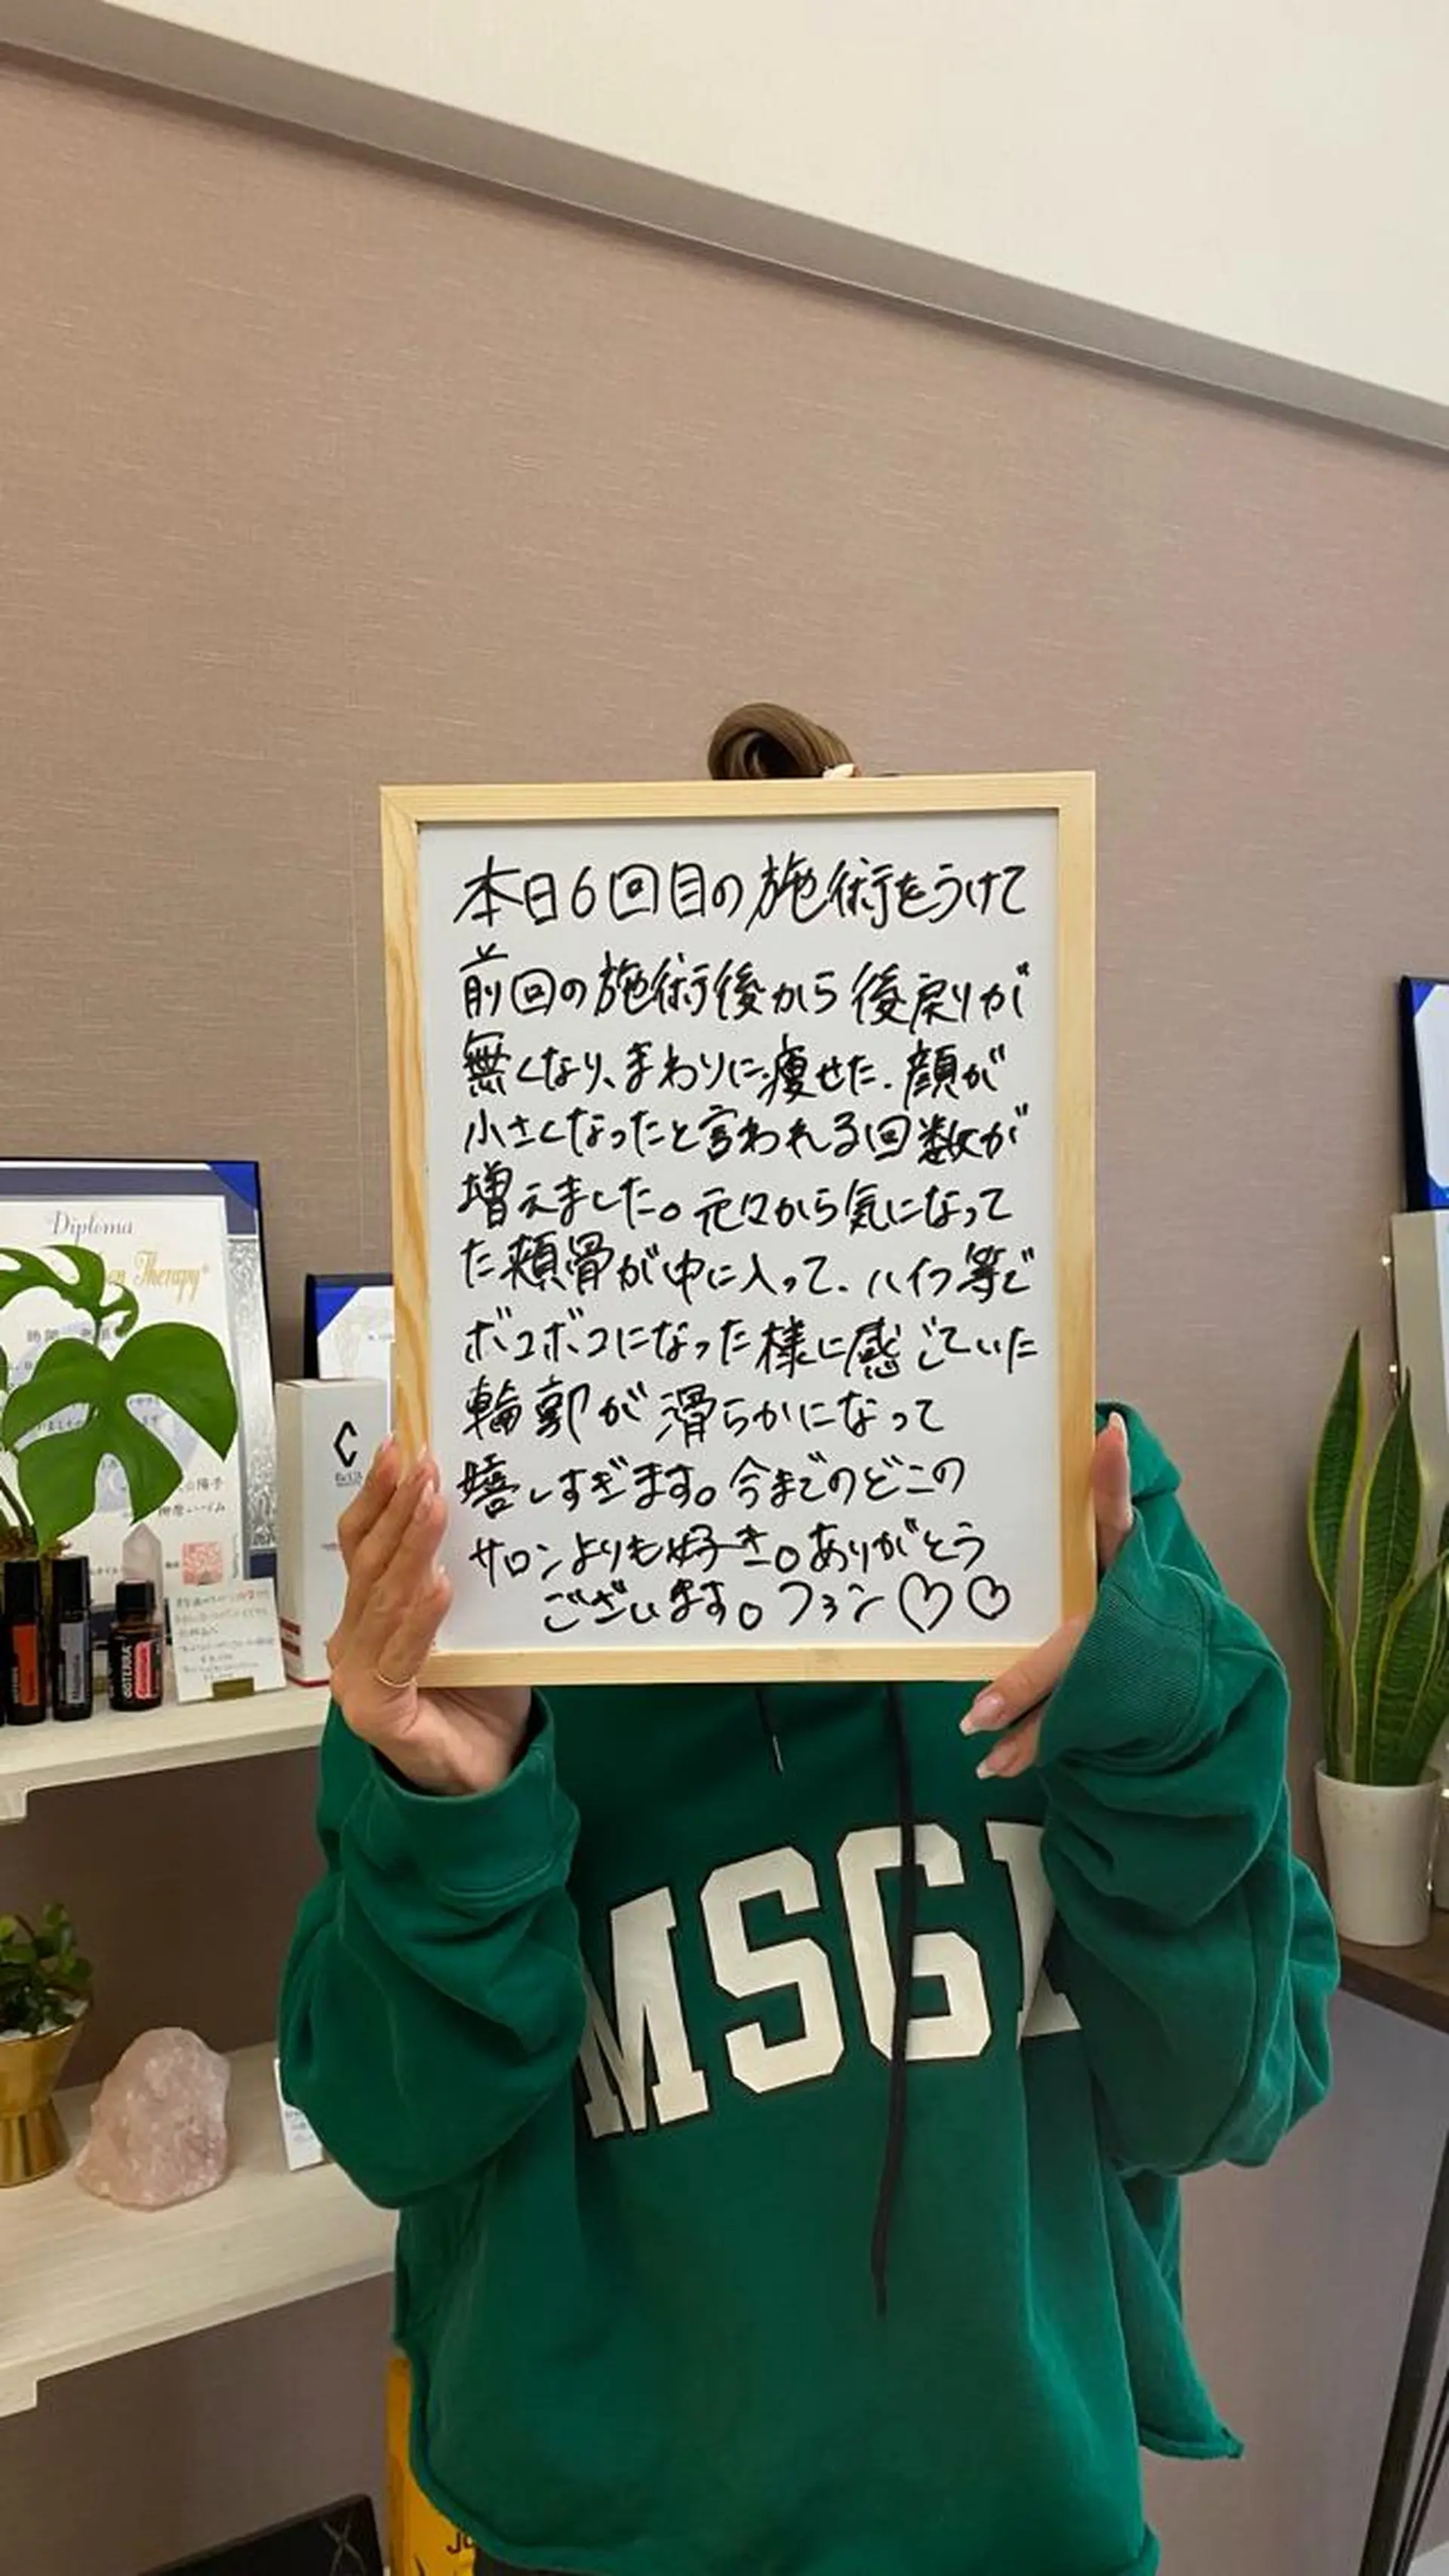 本日6回目の施術をうけて
前回の施術後から後戻りが
無くなり、まわりに痩せた、顔が
小さくなったと言われる回数が
増えました。元々から気になって
た頬骨が中に入って、ハイフ等で
ボコボコになった様に感じていた
輪郭が滑らかになって
嬉しすぎます。今までのどこの
サロンよりも好き。ありがとう
ございます。
Diploma
Therapy
C
doTERRA
MSG